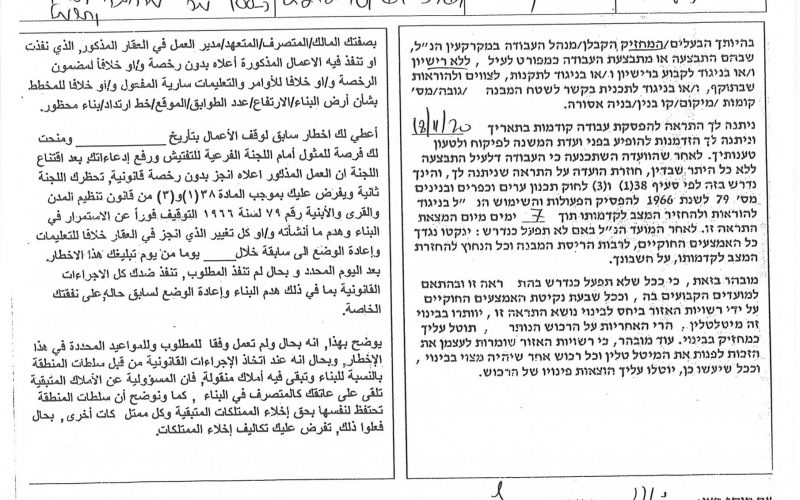 בהיותך הבעלים/המחזיק הקבלן/מנהל העבודה במקרקעין הנ"ל,
שבהם התבצעה או מתבצעת העבודה כמפורט לעיל, ללא רישיון
ו/או בניגוד לקבוע ברישיון ו/או בניגוד לתקנות, לצווים ולהוראות
שבתוקף, ו/או בניגוד לתכנית בקשר לשטח המבנה /גובה/מס'
קומות /מיקום/קו בנין/בניה אסורה.
ניתנה לך התראה להפסקת עבודה קודמות בתאריך 18/11/20
וניתנה לך הזדמנות להופיע בפני ועדת המשנה לפיקוח ולטעון
טענותיך. לאחר שהוועדה השתכנעה כי העבודה דלעיל התבצעה
ללא כל היתר שבדין, חוזרת הועדה על התראה שניתנה לך, והינך
נדרש בזה לפי סעיף 38(1) ו(3) לחוק תכנון ערים וכפרים ובנינים
מס' 79 לשנת 1966 להפסיק הפעולות והשימוש הנ"ל בניגוד
להוראות ולהחזיר המצב לקדמותו תוך 7 ימים מיום המצאת
התראה זו. לאחר המועד הנ"ל באם לא תפעל כנדרש: ינקטו נגדך
כל האמצעים החוקיים, לרבות הריסת המבנה וכל הנחוץ להחזרת
המצב לקדמותו, על חשבונך.
מובהר בזאת, כי ככל שלא תפעל כנדרש בהת ראה זו ובהתאם
למועדים הקבועים בה, וככל שבעת נקיטת האמצעים החוקיים
על ידי רשויות האזור ביחס לבינוי נושא התראה זו, יוותרו בבינוי
זה מיטלטלין, הרי האחריות על הרכוש הנותר, תוטל עליך
כמחזיק בבינוי. עוד מובהר, כי רשויות האזור שומרות לעצמן את
הזכות לפנות את המיטלטלין וכל רכוש אחר שיהיה מצוי בבינוי,
וככל שיעשו כן, יוטלו עליך הוצאות פינויו של הרכוש.
بصفتك المالك/المتصرف/المتعهد/مدير العمل في العقار المذكور, الذي نفذت
او تنفذ فيه الاعمال المذكورة أعلاه بدون رخصة و/او خلافاً لمضمون
الرخصة و/او خلافا للأوامر والتعليمات سارية المفعول و/او خلافا للمخطط
بشأن أرض البناء/الارتفاع/عدد الطوابق/الموقع/خط ارتداد/بناء محظور.
أعطي لك اخطار سابق لوقف الأعمال بتأريخ ومنحت
لك فرصة للمثول أمام اللجنة الفرعية للتفتيش ورفع إدعاءاتك, بعد اقتناع
اللجنة ان العمل المذكور اعلاه انجز بدون رخصة قانونية, تحظرك اللجنة
ثانية ويفرض عليك بموجب المادة ٣٨(١)و(٣) من قانون تنظيم المدن
والقرى والأبنية رقم ٧٩ لسنة ١٩٦٦ التوقيف فوراً عن الاستمرار في
البناء وهدم ما أنشأته و/او كل تغيير الذي انجز في العقار خلافا للتعليمات
وإعادة الوضع الى سابقة خلال يوما من يوم تبليغك هذا الاخطار.
بعد اليوم المحدد و بحال لم تنفذ المطلوب, تنفذ ضدك كل الاجراءات
القانونية بما في ذلك هدم البناء وإعادة الوضع لسابق حاله, على نفقتك
الخاصة.
يوضح بهذا, انه بحال ولم تعمل وفقا للمطلوب وللمواعيد المحددة في هذا
الإخطار, وبحال انه عند اتخاذ الإجراءات القانونية من قبل سلطات المنطقة
بالنسبة للبناء وتبقى فيه أملاك منقولة, فان المسؤولية عن الأملاك المتبقية
تلقى على عاتقك كالمتصرف في البناء, كما ونوضح أن سلطات المنطقة
تحتفظ لنفسها بحق إخلاء الممتلكات المتبقية وكل ممتلكات أخرى, بحال
فعلوا ذلك, تفرض عليك تكاليف إخلاء الممتلكات.